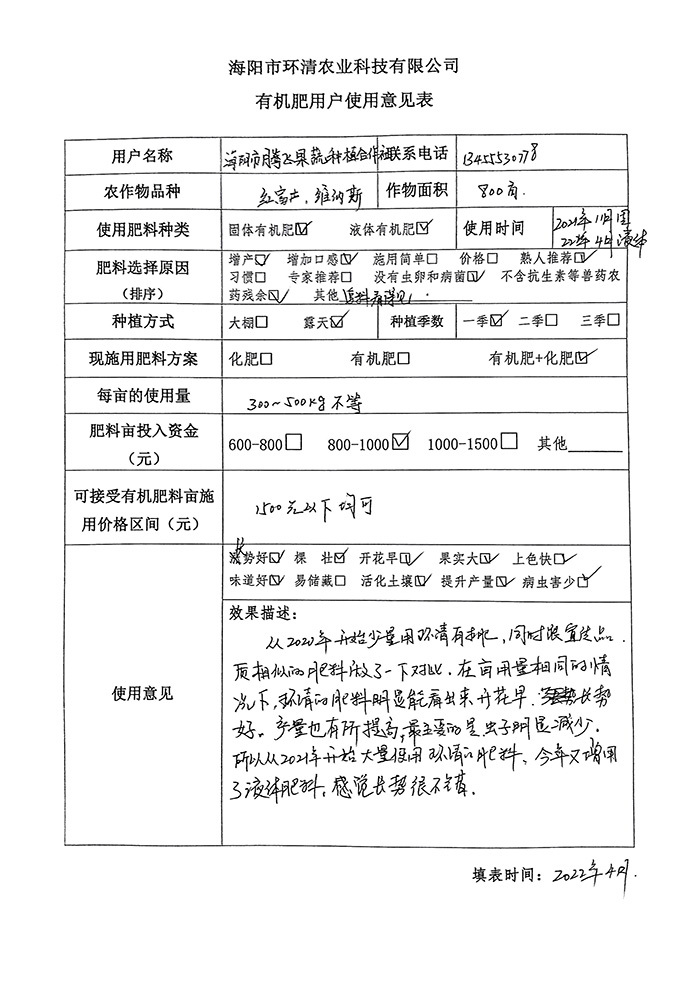 海阳市环清农业科技有限公司
有机肥用户使用意见表
用户名称 海阳市腾飞果蔬种植合作社 联系电话 13455530778
农作物品种 红富士、维纳斯 作物面积 800亩.
使用肥料种类 固体有机肥☑ 液体有机肥☑ 使用时间 2021年11月固
22年4月液体
肥料选择原因 增产☑ 增加口感☑ 施用简单□ 价格□ 熟人推荐☑
(排序) 习惯□ 专家推荐□ 没有虫卵和病菌☑ 不含抗生素等兽药农
药残余☑ 其他
种植方式 大棚□ 露天☑ 种植季数 一季☑ 二季□ 三季□
现施用肥料方案 化肥□ 有机肥□ 有机肥+化肥☑
每亩的使用量 300~500kg不等
肥料亩投入资金 600-800□ 800-1000☑ 1000-1500□ 其他
(元)
可接受有机肥料亩施 1500元以下均可
用价格区间(元)
使用意见 长势好☑ 棵 壮☑ 开花早☑ 果实大☑ 上色快□
味道好☑ 易储藏□ 活化土壤☑ 提升产量☑ 病虫害少☑
效果描述:
从2020年开始少量用环清有机肥,同时跟宣传品.
质相似的肥料做了一下对比,在亩用量相同的情
况下,环清的肥料明显能看出来开花早.长势
好。产量也有所提高,最主要的是虫子明显减少.
所以从2021年开始大量使用环清的肥料、今年又增用
了液体肥料,感觉长势很不错.
填表时间:2022年4月.